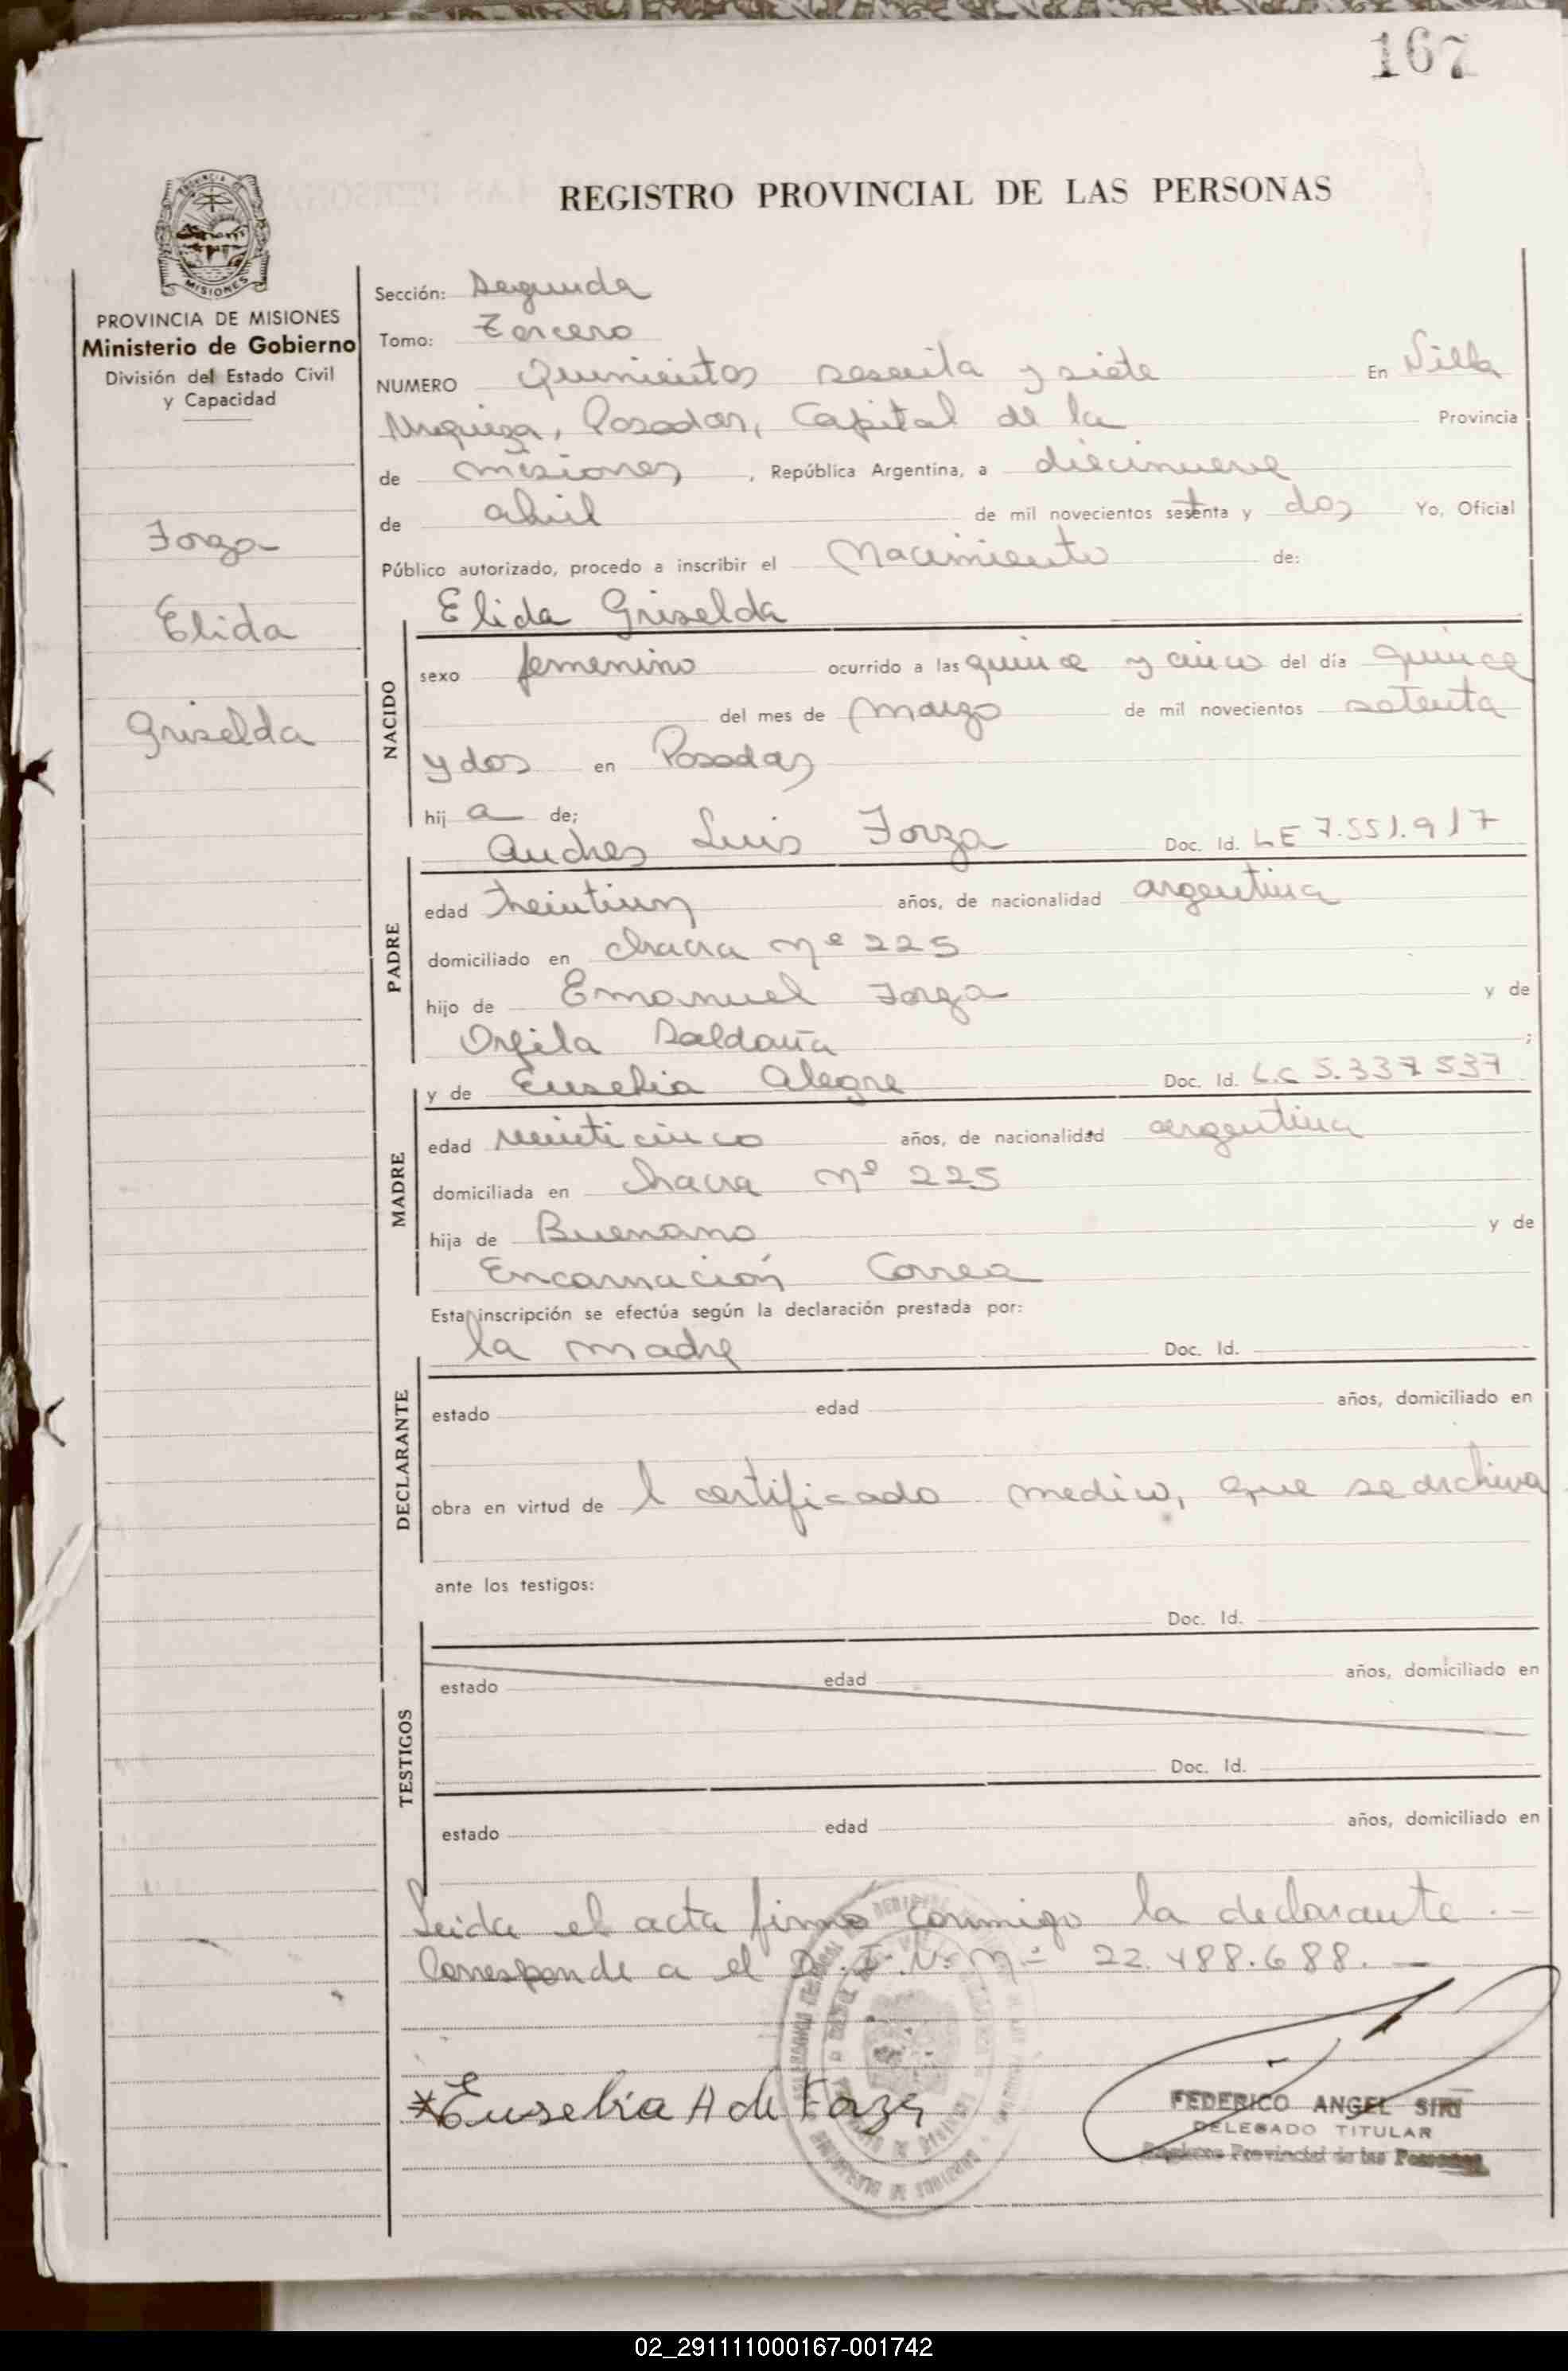 167
REGISTRO PROVINCIAL DE LAS PERSONAS
PROVINCIA DE MISIONES
MISIONES
PROVINCIA DE MISIONES
Ministerio de Gobierno
División del Estado Civil
y Capacidad
Forza
Elida
Griselda
Sección: Segunda
Tomo: Tercero
NUMERO Quinientos sesenta y siete En Villa
Urquiza, Posadas, Capital de la Provincia
de misiones, República Argentina, a diecinueve
de abril de mil novecientos setenta y dos Yo, Oficial
Público autorizado, procedo a inscribir el Nacimiento de:
Elida Griselda
NACIDO
sexo femenino ocurrido a las quince y cinco del día quince
del mes de marzo de mil novecientos setenta
y dos en Posadas
hij a de;
Andres Luis Forza Doc. Id. LE 7.551.917
PADRE
edad treintiun años, de nacionalidad argentina
domiciliado en chacra nº 225
hijo de Emanuel Forza y de
Orfila Saldaña ;
y de Eusebia Alegre Doc. Id. L.C 5.337 537
MADRE
edad veinticinco años, de nacionalidad argentina
domiciliada en chacra nº 225
hija de Buenano y de
Encarnación Correa
Esta inscripción se efectúa según la declaración prestada por:
la madre Doc. Id.
DECLARANTE
estado edad años, domiciliado en
obra en virtud de l certificado medico, que se archiva
ante los testigos:
Doc. Id.
TESTIGOS
estado edad años, domiciliado en
Doc. Id.
estado edad años, domiciliado en
Leida el acta firma conmigo la declarante.-
Corresponde a el D.I.N. Nº 22.488.688.-
*Eusebia A de Forza
FEDERICO ANGEL SIRI
DELEGADO TITULAR
Registro Provincial de las Personas
02_291111000167-001742